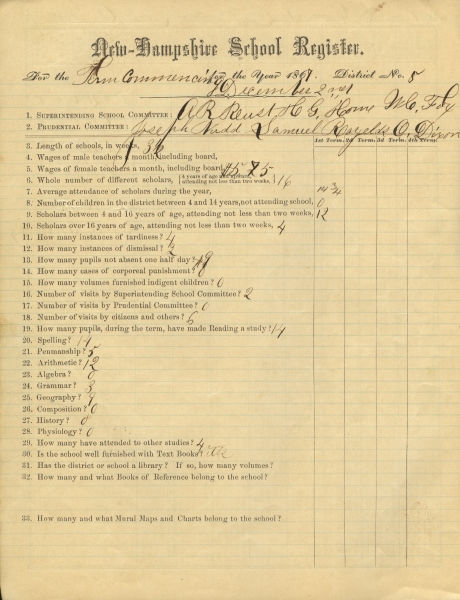 New-Hampshire School Register.
For the Term Commencing for the Year 1867. District No. 8
December 2nd
1. Superintending School Committee: A R H. G. Horne W. C. Fox
2. Prudential Committee: Joseph Samuel O. Dixon
1st Term. 2d Term. 3d Term. 4th Term.
3. Length of schools, in weeks,
4. Wages of male teachers a month, including board,
5. Wages of female teachers a month, including board,
6. Whole number of different scholars, {4 years of age and upwards, attending not less than two weeks,} 16
7. Average attendance of scholars during the year, 14
8. Number of children in the district between 4 and 14 years, not attending school, 0
9. Scholars between 4 and 16 years of age, attending not less than two weeks, 12
10. Scholars over 16 years of age, attending not less than two weeks, 4
11. How many instances of tardiness? 4
12. How many instances of dismissal?
13. How many pupils not absent one half day?
14. How many cases of corporeal punishment?
15. How many volumes furnished indigent children? 0
16. Number of visits by Superintending School Committee? 2
17. Number of visits by Prudential Committee? 0
18. Number of visits by citizens and others? 6
19. How many pupils, during the term, have made Reading a study? 14
20. Spelling? 14
21. Penmanship? 5
22. Arithmetic? 12
23. Algebra? 0
24. Grammar? 3
25. Geography? 9
26. Composition? 0
27. History? 0
28. Physiology? 0
29. How many have attended to other studies? 4
30. Is the school well furnished with Text Books?
31. Has the district or school a library? If so, how many volumes?
32. How many and what Books of Reference belong to the school?
33. How many and what Mural Maps and Charts belong to the school?